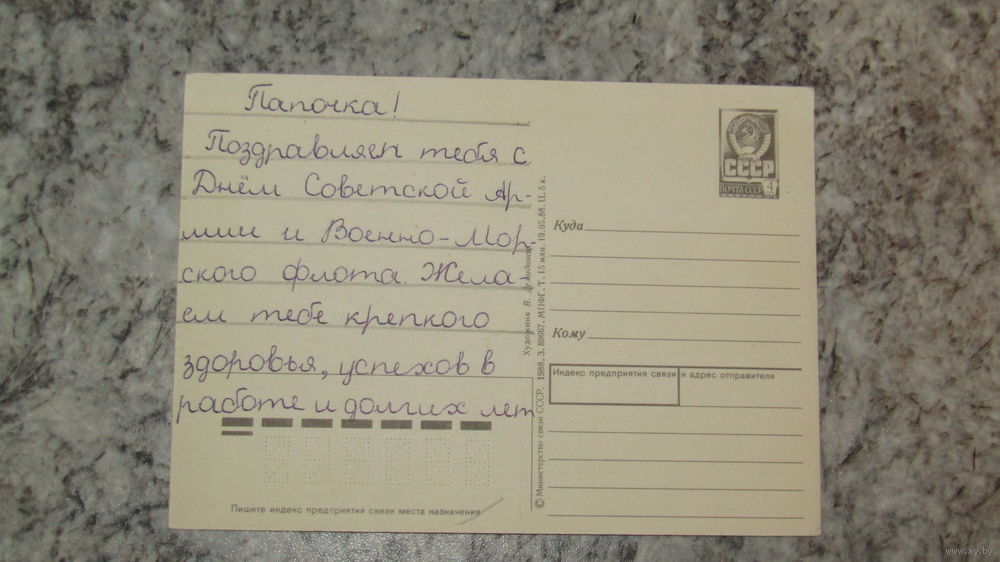 Папочка!
Поздравляем тебя с
Днём Советской Ар-
мии и Военно-Мор-
ского флота. Жела-
ем тебе крепкого
здоровья, успехов в
работе и долгих лет
Пишите индекс предприятия связи места назначения
Художник В.
© Министерство связи СССР. 1988. З. 89667. МПФГ. Т. 15 млн. 19.05.88. Ц. 5 к.
СССР
ПОЧТА СССР
Куда
Кому
Индекс предприятия связи и адрес отправителя
www.ay.by